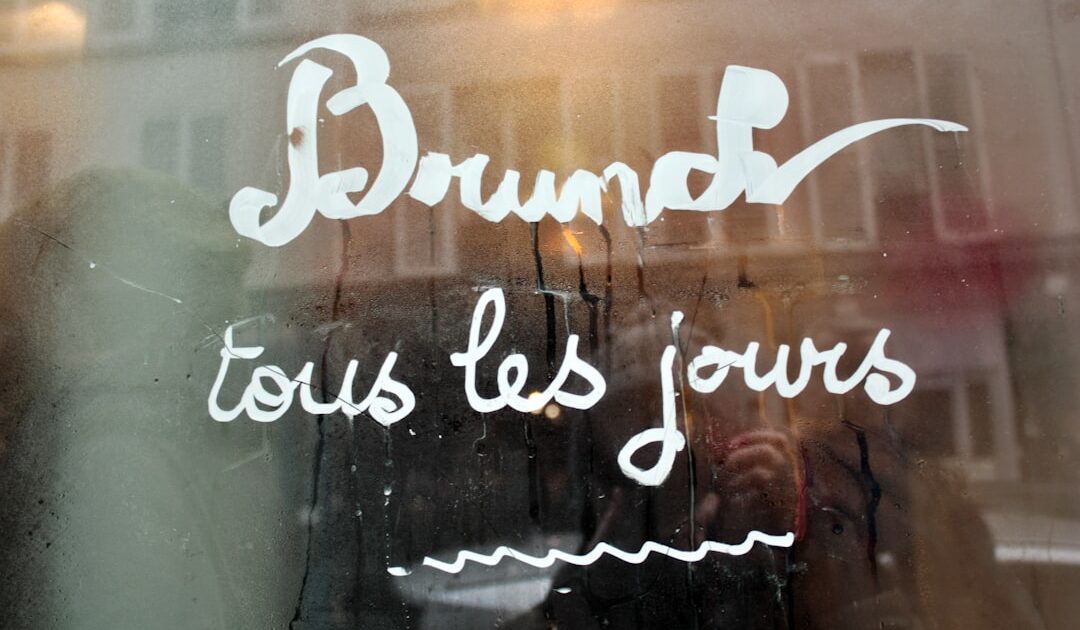 Brunch
tous les jours